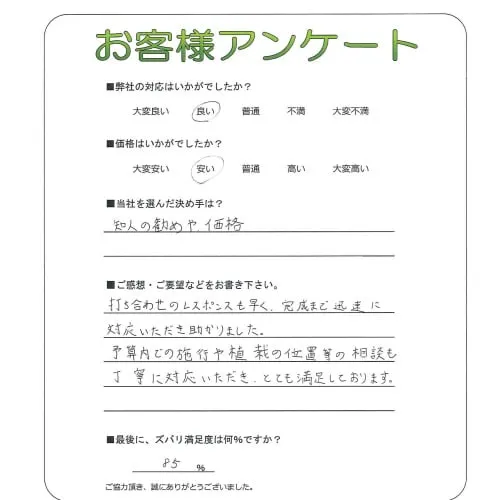 お客様アンケート
■弊社の対応はいかがでしたか？
大変良い 良い 普通 不満 大変不満
■価格はいかがでしたか？
大変安い 安い 普通 高い 大変高い
■当社を選んだ決め手は？
知人の勧めや、価格
■ご感想・ご要望などをお書き下さい。
打ち合わせのレスポンスも早く、完成まで迅速に
対応いただき助かりました。
予算内での施行や植栽の位置等の相談も
丁寧に対応いただき、とても満足しております。
■最後に、ズバリ満足度は何%ですか？
85 %
ご協力頂き、誠にありがとうございました。